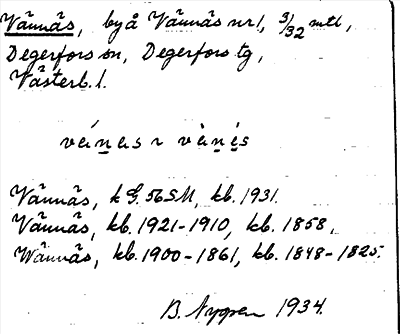 Vännäs, by å Vännäs nr 1, 3/32 mtl,
Degerfors sn, Degerfors tg,
Västerb. l.
vánas ~ vànẹs
Vännäs, k G.56SM, kb. 1931.
Vännäs, kb. 1921-1910, kb. 1858,
Wännäs, kb. 1900-1861, kb. 1848-1825.
B. Nygren 1934.